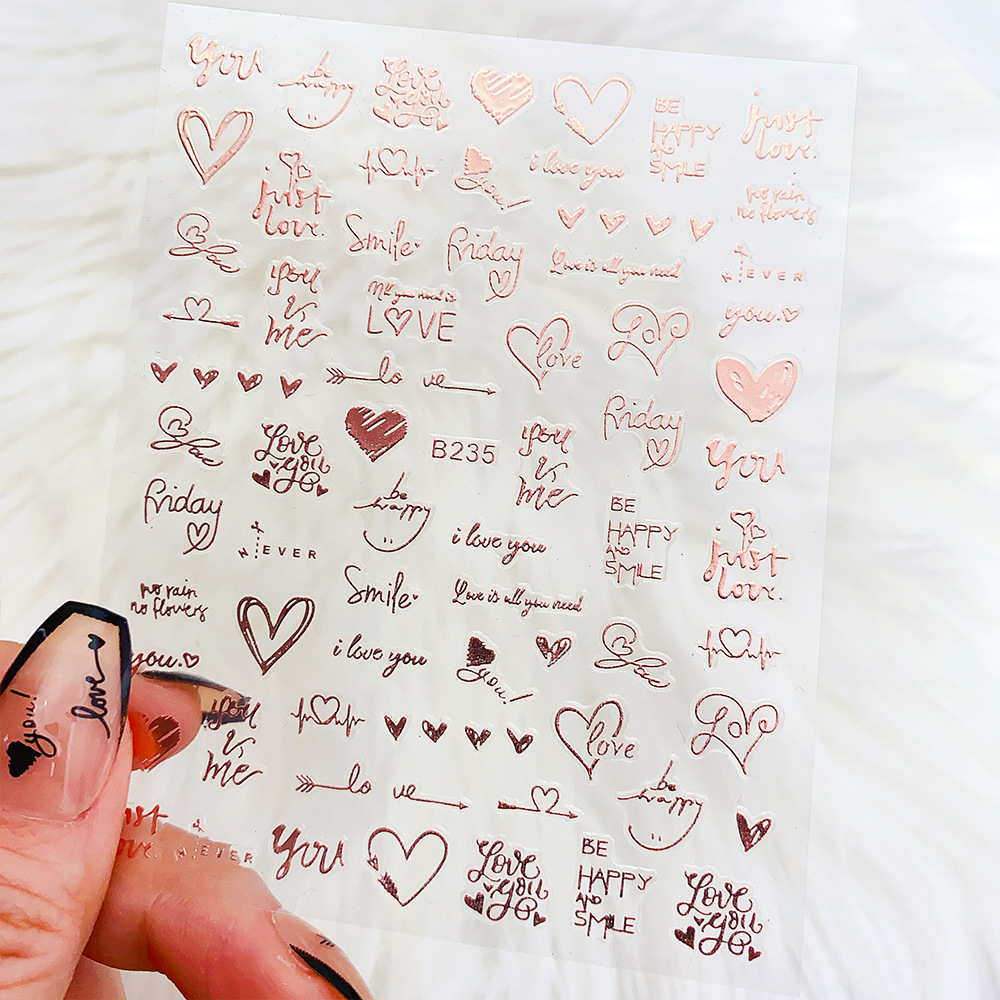 You
be
happy
Love
you
BE
HAPPY
AND
SMILE
just
love.
i love you
you!
just
love.
no rain
no flowers
Smile
friday
Love is all you need
NEVER
Love
you
&
me
All you need is
LOVE
love
Love
you.
lo ve
friday
Love
Love
you
B235
you
&
me
You
friday
be
happy
BE
HAPPY
AND
SMILE
NEVER
i love you
just
love.
no rain
no flowers
Smile
Love is all you need
you.
i love you
you!
Love
you!
love
you
&
me
love
Love
lo ve
be
happy
just
love.
NEVER
You
Love
you
BE
HAPPY
AND
SMILE
Love
you